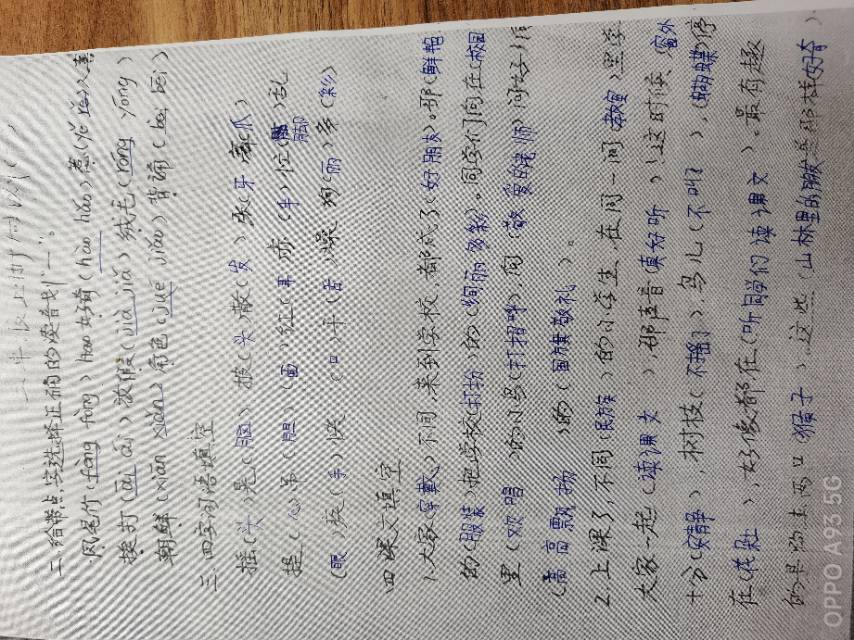 二、给带点字选择正确的读音划"—"。
凤尾竹(fàng fòng) hào 好奇(hào hǎo)
挨打(āi ái)放假(jià jiǎ)绒毛(róng yōng)
朝鲜(xiǎn xiān)角色(jué jiǎo)背诵(bēi bèi)
三、四字词语填空
摇(头)晃(脑) 披(头)散(发) 张(牙)舞(爪)
提(心)吊(胆) (面)红(耳)赤 (手)忙(脚)乱
(眼)疾(手)快 (口)干(舌)燥 绚(丽)多(彩)
四 课文填空
1.大家(穿戴)不同,来到学校,都成了(好朋友)。那(鲜艳
的(服装)把学校(打扮)的(绚丽多彩)。同学们向在(校园
里(欢唱)的小鸟(打招呼),向(敬爱的老师)问好,向
(高高飘扬)的(国旗敬礼)。
2.上课了,不同(民族)的小学生,在同一间(教室)里学
大家一起(读课文),那声音(真好听)!这时候,窗外
十分(安静),树枝(不摇了),鸟儿(不叫了),(蝴蝶)停
在(花朵上),好像都在(听同学们读课文)。最有趣
的是跑来两只(猴子)。这些(山林里的朋友是那样好奇)
OPPO A93 5G